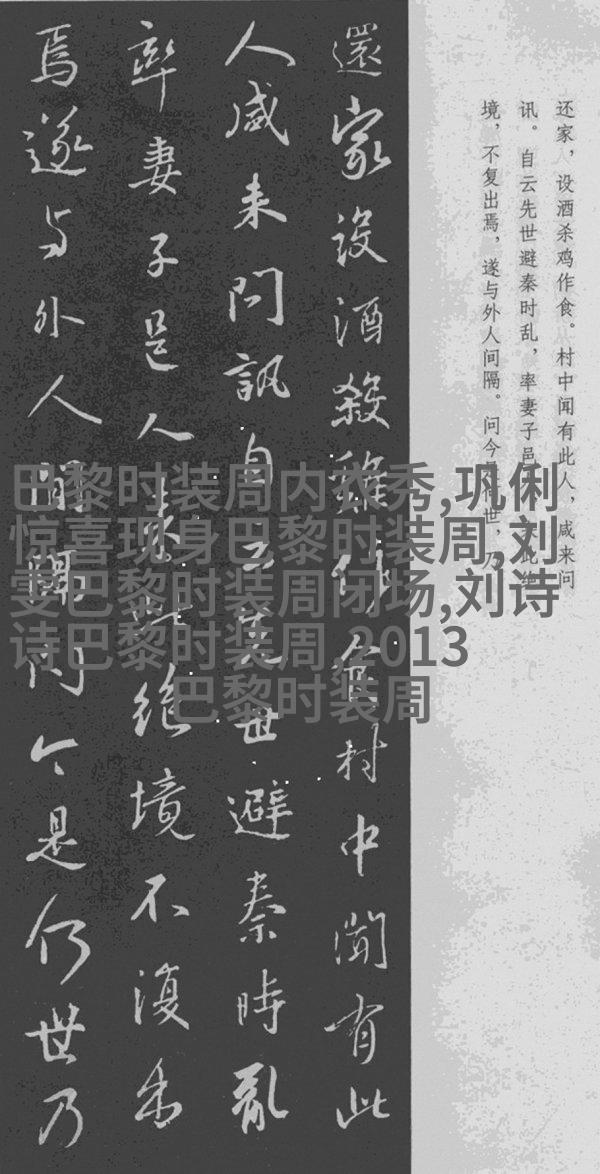 还家，设酒杀鸡作食。村中闻有此人，咸来问
讯。自云先世避秦时乱，率妻子邑人来此绝
境，不复出焉，遂与外人间隔。问今是何世，乃
還家設酒殺雞作食村中聞有此
人咸来問訊自云先世避秦時亂
率妻子邑人来此绝境不復出
焉遂与外人間隔问今是何世乃
巴黎时装周内衣秀,巩俐
惊喜现身巴黎时装周,刘
雯巴黎时装周闭场,刘诗
诗巴黎时装周,2013
巴黎时装周